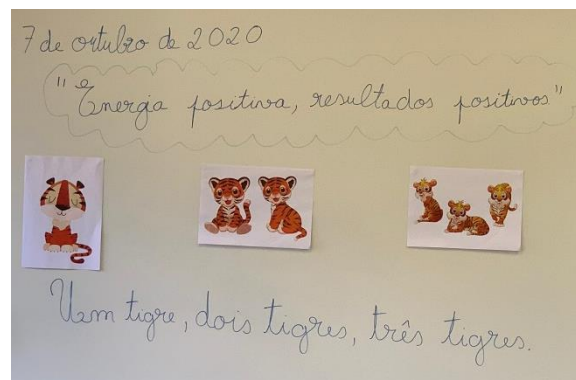 7 de outubro de 2020
"Energia positiva, resultados positivos"
Um tigre, dois tigres, três tigres.